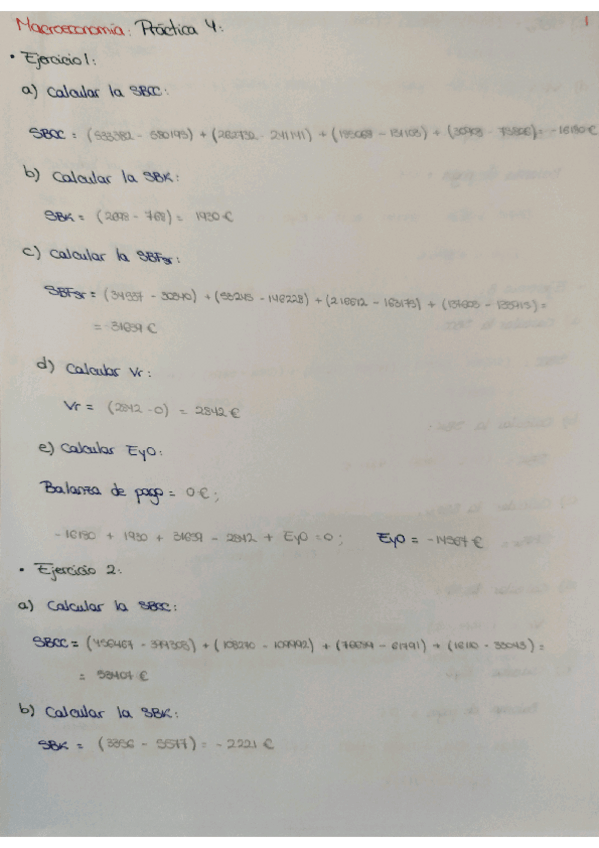 Macroeconomía: Práctica 4:
1
• Ejercicio 1:
a) Calcular la SBCC:
SBCC = (533382 - 580193) + (262732 - 241141) + (185067 - 131103) + (30908 - 75806) = -16180 €
b) Calcular la SBK:
SBK = (2698 - 768) = 1930 €
c) Calcular la SBFsr:
SBFsr = (34937 - 30340) + (53245 - 146228) + (216612 - 163173) +
= 31639 €
d) Calcular Vr:
Vr = (2842 - 0) = 2842 €
e) Calcular EyO:
Balanza de pago = 0 €;
-16180 + 1930 + 31639 - 2842 + EyO = 0; EyO = -14567 €
• Ejercicio 2:
a) Calcular la SBCC:
SBCC = (456467 - 399308) + (108270 - 109992) + (76699 - 61791) + (16110 - 35045) =
= 53407 €
b) Calcular la SBK:
SBK = (3356 - 5577) = -2221 €